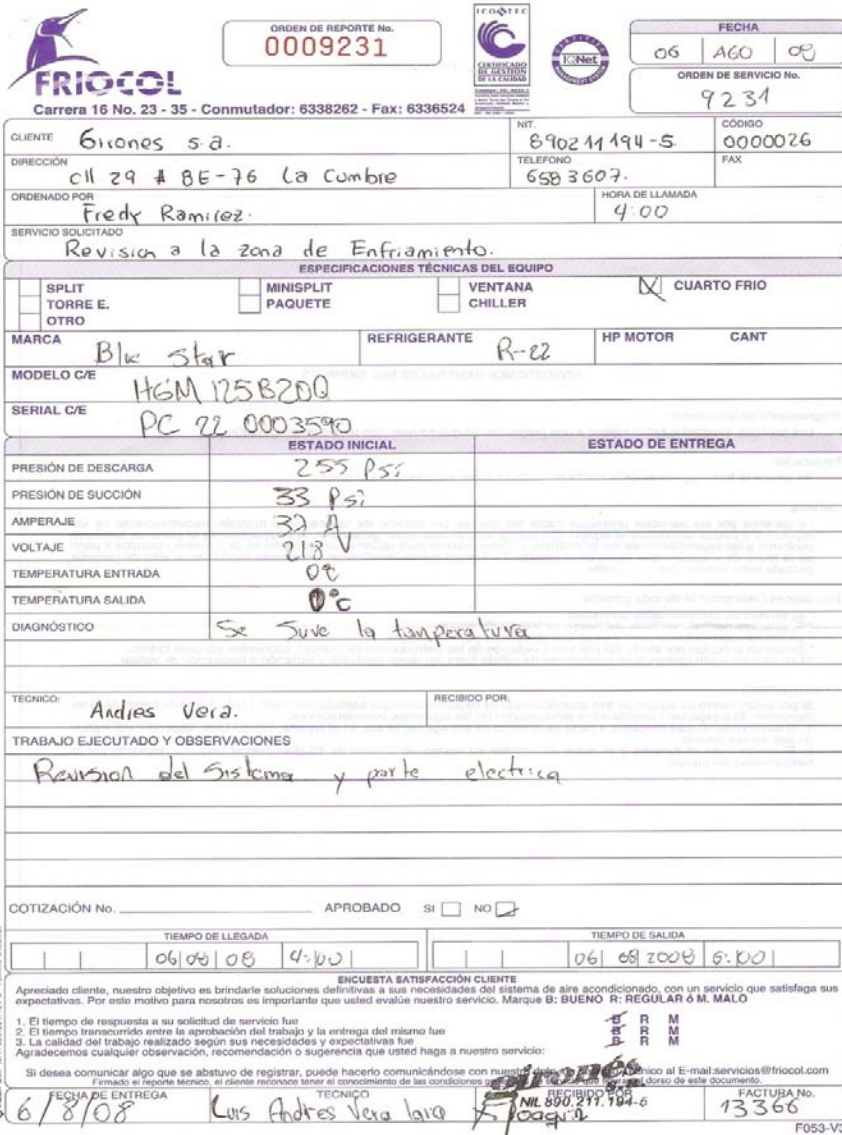 ORDEN DE REPORTE No.
0009231
ICONTEC
CERTIFICADO
DE GESTIÓN
DE LA CALIDAD
IQNet
FECHA
06 AGO 08
ORDEN DE SERVICIO No.
9231
FRIOCOL
Carrera 16 No. 23 - 35 - Conmutador: 6338262 - Fax: 6336524
CLIENTE Girones s.a.
NIT. 890211194-5
CÓDIGO 0000026
DIRECCIÓN cll 29 # 8E-76 La Cumbre
TELEFONO 6583607.
FAX
ORDENADO POR Fredy Ramirez.
HORA DE LLAMADA 4:00
SERVICIO SOLICITADO
Revision a la zona de Enfriamiento.
ESPECIFICACIONES TÉCNICAS DEL EQUIPO
SPLIT MINISPLIT VENTANA CUARTO FRIO
TORRE E. PAQUETE CHILLER
OTRO
MARCA Blue Star REFRIGERANTE R-22 HP MOTOR CANT
MODELO C/E HGM 125B20Q
SERIAL C/E PC 22 0003590
ESTADO INICIAL ESTADO DE ENTREGA
PRESIÓN DE DESCARGA 255 Psi
PRESIÓN DE SUCCIÓN 33 Psi
AMPERAJE 32 A
VOLTAJE 218 V
TEMPERATURA ENTRADA 0°c
TEMPERATURA SALIDA 0°c
DIAGNÓSTICO Se Suve la tanperatura
TECNICO: Andres Vera.
RECIBIDO POR:
TRABAJO EJECUTADO Y OBSERVACIONES
Revision del Sistema y parte electrica
COTIZACIÓN No. APROBADO SI NO
TIEMPO DE LLEGADA TIEMPO DE SALIDA
06 08 08 4:00 06 08 2008 6:00
ENCUESTA SATISFACCIÓN CLIENTE
Apreciado cliente, nuestro objetivo es brindarle soluciones definitivas a sus necesidades del sistema de aire acondicionado, con un servicio que satisfaga sus
expectativas. Por este motivo para nosotros es importante que usted evalúe nuestro servicio. Marque B: BUENO R: REGULAR ó M. MALO
1. El tiempo de respuesta a su solicitud de servicio fue B R M
2. El tiempo transcurrido entre la aprobación del trabajo y la entrega del mismo fue B R M
3. La calidad del trabajo realizado según sus necesidades y expectativas fue B R M
Agradecemos cualquier observación, recomendación o sugerencia que usted haga a nuestro servicio:
Si desea comunicar algo que se abstuvo de registrar, puede hacerlo comunicándose con nuestro al E-mail:servicios@friocol.com
Firmado el reporte técnico, el cliente reconoce tener el conocimiento de las condiciones dorso de este documento.
gironés
s.a.
Nit. 890.211.194-5
FECHA DE ENTREGA 6/8/08
TECNICO Luis Andres Vera lara
RECIBIDO POR Joaquin
FACTURA No. 13366
F053-V3